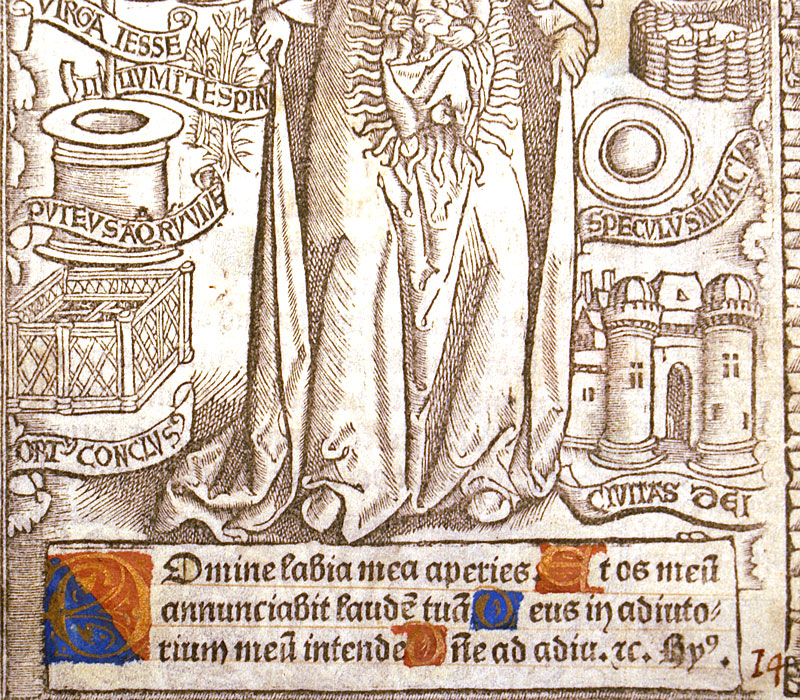 VIRGA IESSE
LILIVM ĪTE SPIN
PVTEVS AQRVVIVĒ
ORTꝰ CONCLVSꝰ
SPECVLV̄ SN̄MACV
CIVITAS DEI
Domine labia mea aperies. Et os meū
annunciabit laudē tuā Deus in adiuto-
rium meū intende Dn̄e ad adiu. ⁊c. Hyꝰ.
14